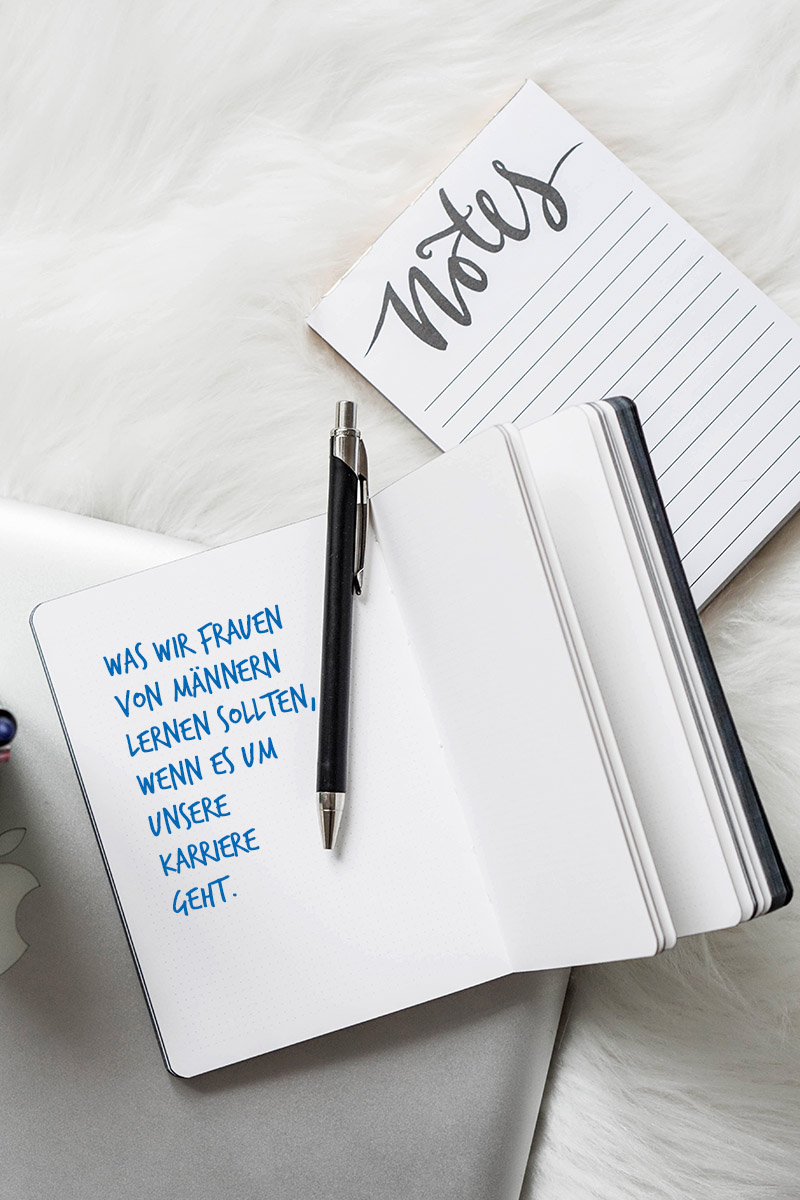 Notes
WAS WIR FRAUEN
VON MÄNNERN
LERNEN SOLLTEN,
WENN ES UM
UNSERE
KARRIERE
GEHT.